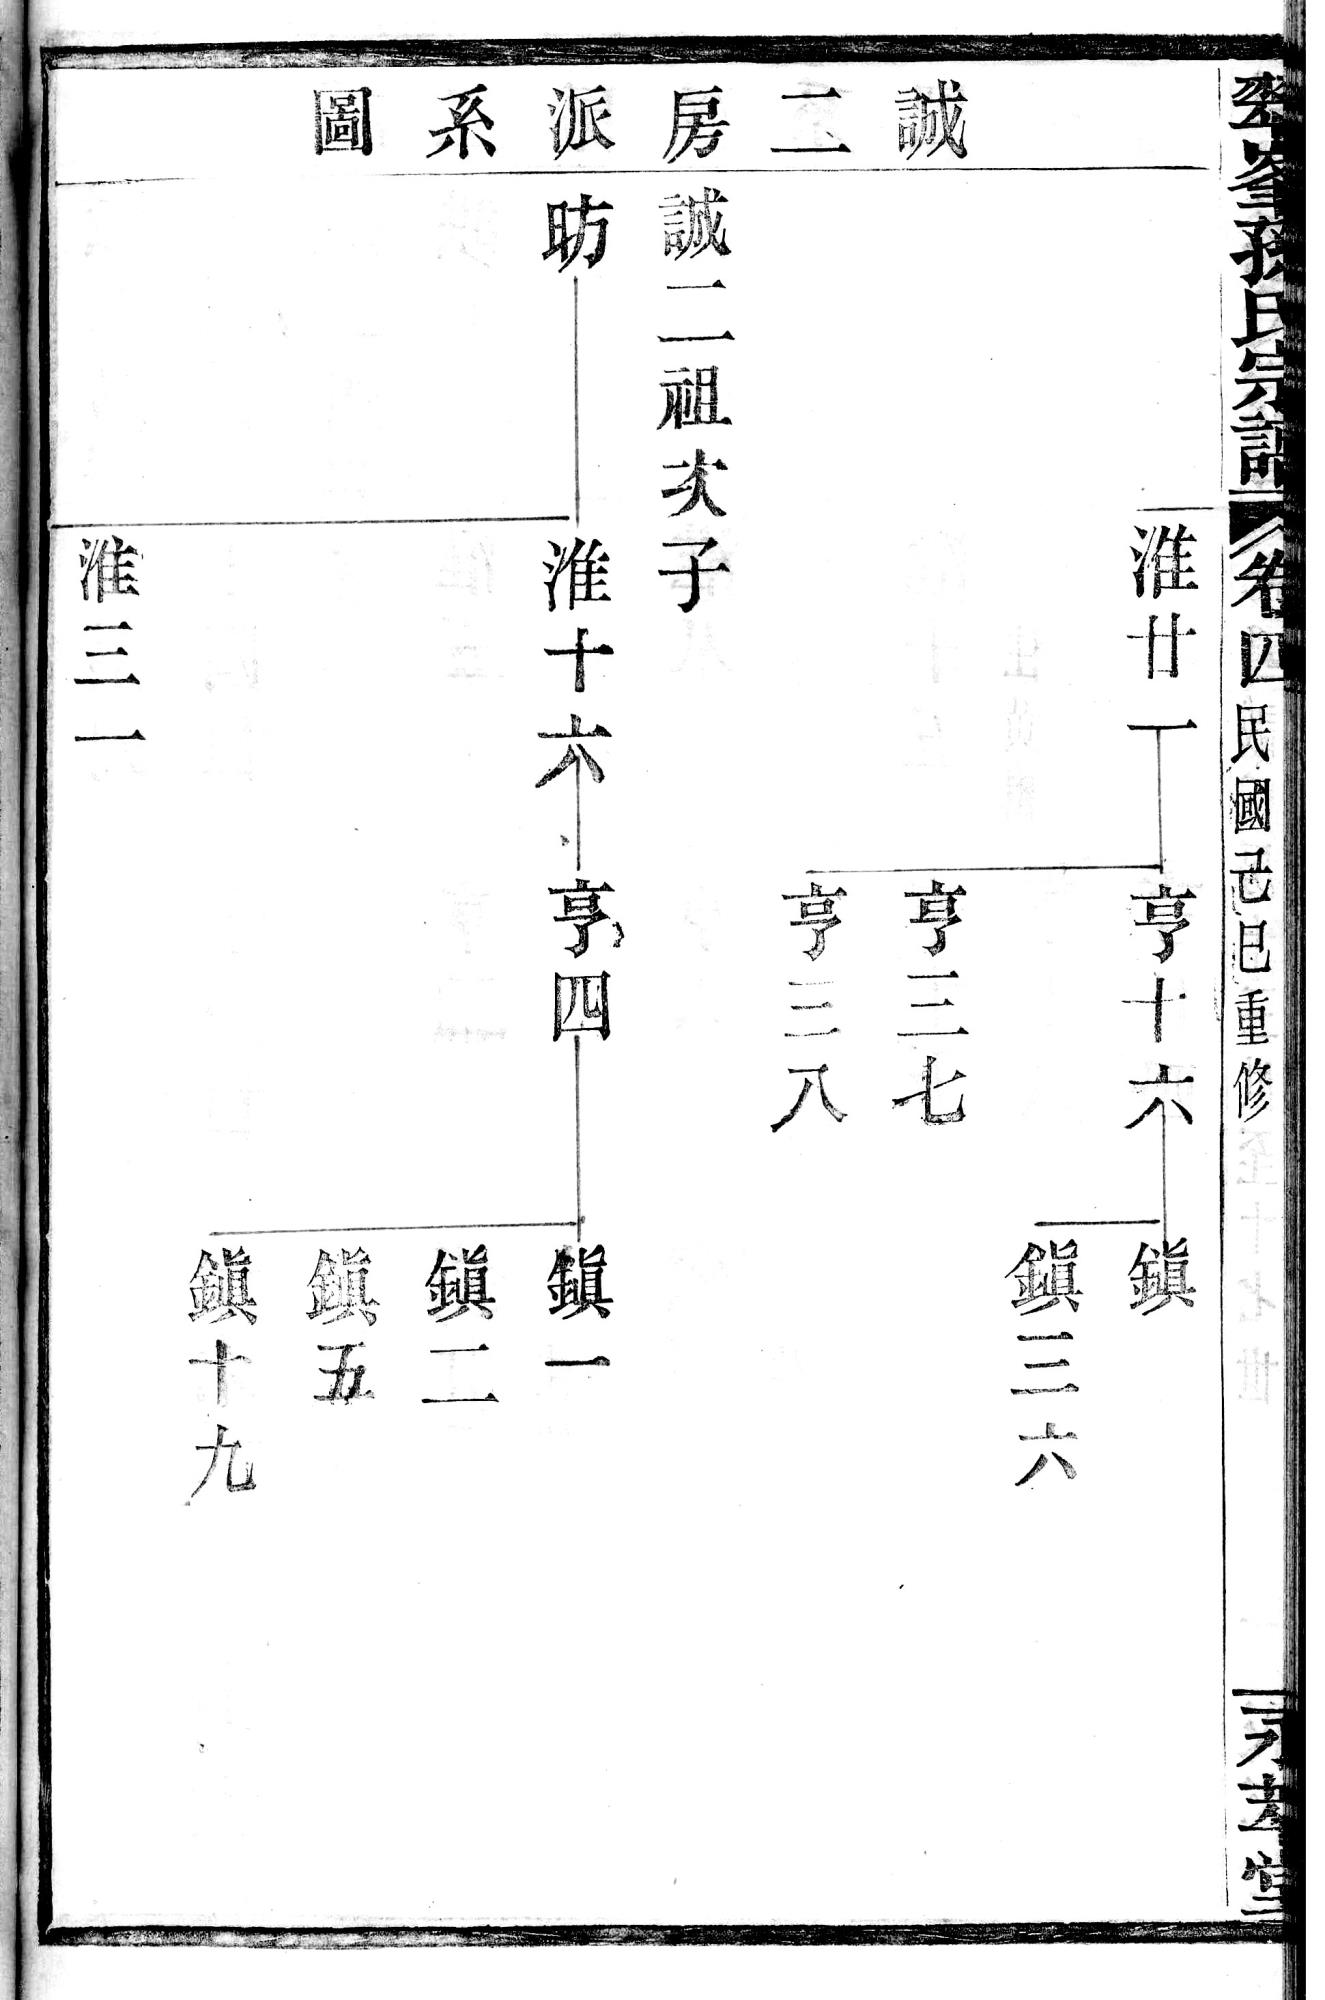 誠二房派系圖
淮廿一
亨十六
鎮
鎮三六
亨三七
亨三八
誠二祖次子
昉
淮十六
亨四
鎮一
鎮二
鎮五
鎮十九
淮三一
峯孫氏宗譜
卷四
民國己巳重修
堂